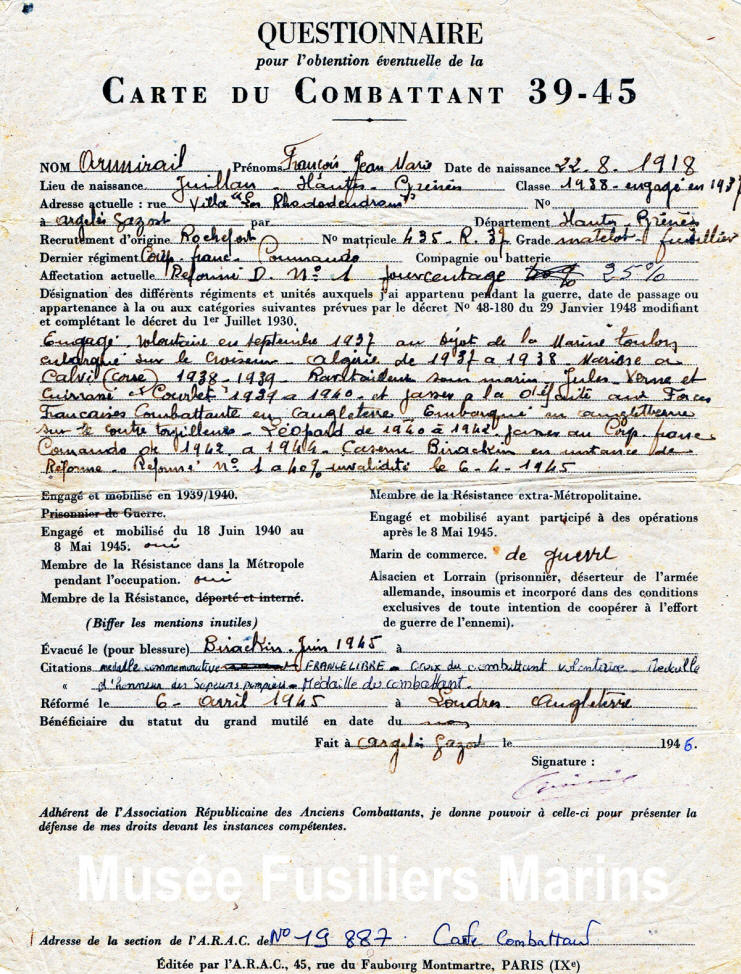 QUESTIONNAIRE
pour l'obtention éventuelle de la
CARTE DU COMBATTANT 39-45
NOM Armirail Prénoms François Jean Marie Date de naissance 22-8-1918
Lieu de naissance Juillan - Hautes - Pyrénées Classe 1938 - engagé en 1937
Adresse actuelle : rue Villa "Les Rhododendrons" No
à Argelès Gazost par Département Hautes-Pyrénées
Recrutement d'origine Rochefort No matricule 435-R.37 Grade matelot fusillier
Dernier régiment Corp-franc-Commando Compagnie ou batterie
Affectation actuelle Reformé D. N° 1 pourcentage 25%
Désignation des différents régiments et unités auxquels j'ai appartenu pendant la guerre, date de passage ou
appartenance à la ou aux catégories suivantes prévues par le décret No 48-180 du 29 Janvier 1948 modifiant
et complétant le décret du 1er Juillet 1930.
Engagé volontaire en septembre 1937 au dépot de la Marine Toulon
enbarqué sur le Croiseur - Algérie de 1937 a 1938 - Marine a
Calvi (Corse) 1938-1939 - Ravitailleur sous marin - Jules - Verne et
Cuirassé et Courbet 1939 a 1940 - et passer a la aux Forces
Francaises Combattante en Angleterre - Embarqué en angletterre
sur le contre torpilleurs - Léopard de 1940 à 1942. passer au Corp. franc
Comando de 1942 a 1944 - Caserne Birackin en instance de
Réforme - Réformé N° 1 a 40% invalidité le 6-4-1945
Engagé et mobilisé en 1939/1940.
Prisonnier de Guerre.
Engagé et mobilisé du 18 Juin 1940 au
8 Mai 1945. oui
Membre de la Résistance dans la Métropole
pendant l'occupation. oui
Membre de la Résistance, déporté et interné.
(Biffer les mentions inutiles)
Membre de la Résistance extra-Métropolitaine.
Engagé et mobilisé ayant participé à des opérations
après le 8 Mai 1945.
Marin de commerce. de guerre
Alsacien et Lorrain (prisonnier, déserteur de l'armée
allemande, insoumis et incorporé dans des conditions
exclusives de toute intention de coopérer à l'effort
de guerre de l'ennemi).
Évacué le (pour blessure) Birackin - Juin 1945 à
Citations medelle commemorative FRANCE LIBRE - Croix du combattant volontaire - Medaille
" d'honneur des Sapeurs pompiers - Médaille du combattant.
Réformé le 6 - avril 1945 à Londres - Angleterre
Bénéficiaire du statut du grand mutilé en date du non
Fait à Argelès Gazost le 1946.
Signature :
Adhérent de l'Association Républicaine des Anciens Combattants, je donne pouvoir à celle-ci pour présenter la
défense de mes droits devant les instances compétentes.
Musée Fusiliers Marins
Adresse de la section de l'A.R.A.C. de N° 19 887 - Carte Combattant
Éditée par l'A.R.A.C., 45, rue du Faubourg Montmartre, PARIS (IXe)